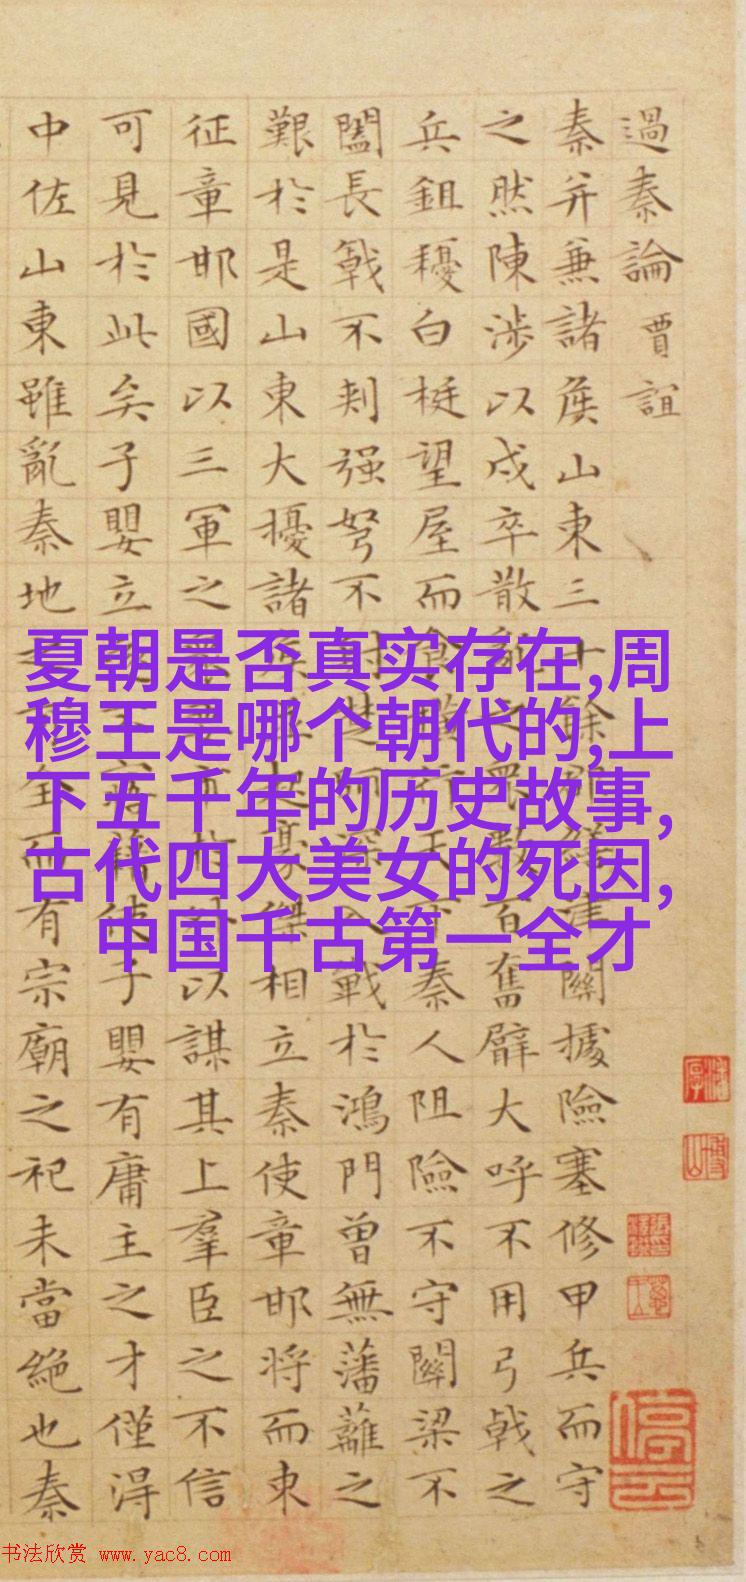 過秦論 賈誼
秦并兼諸侯山東三十餘郡繕津關據險塞修甲兵而守
之然陳涉以戍卒散亂之眾數百奮臂大呼不用弓戟之
兵鉏耰白梃望屋而食橫行天下秦人阻險不守關梁不
闔長戟不刺强弩不射楚師深入戰於鴻門曾無藩蘺之
艱於是山東大擾諸侯並起豪傑相立秦使章邯將而東
征章邯國以三軍之眾要市於外以謀其上羣臣之不信
可見於此矣子嬰立遂不寤藉使子嬰有庸主之才僅得
中佐山東雖亂秦地可全而有宗廟之祀未當絕也秦
夏朝是否真实存在,周
穆王是哪个朝代的,上
下五千年的历史故事,
古代四大美女的死因,
中国千古第一全才
书法欣赏 www.yac8.com